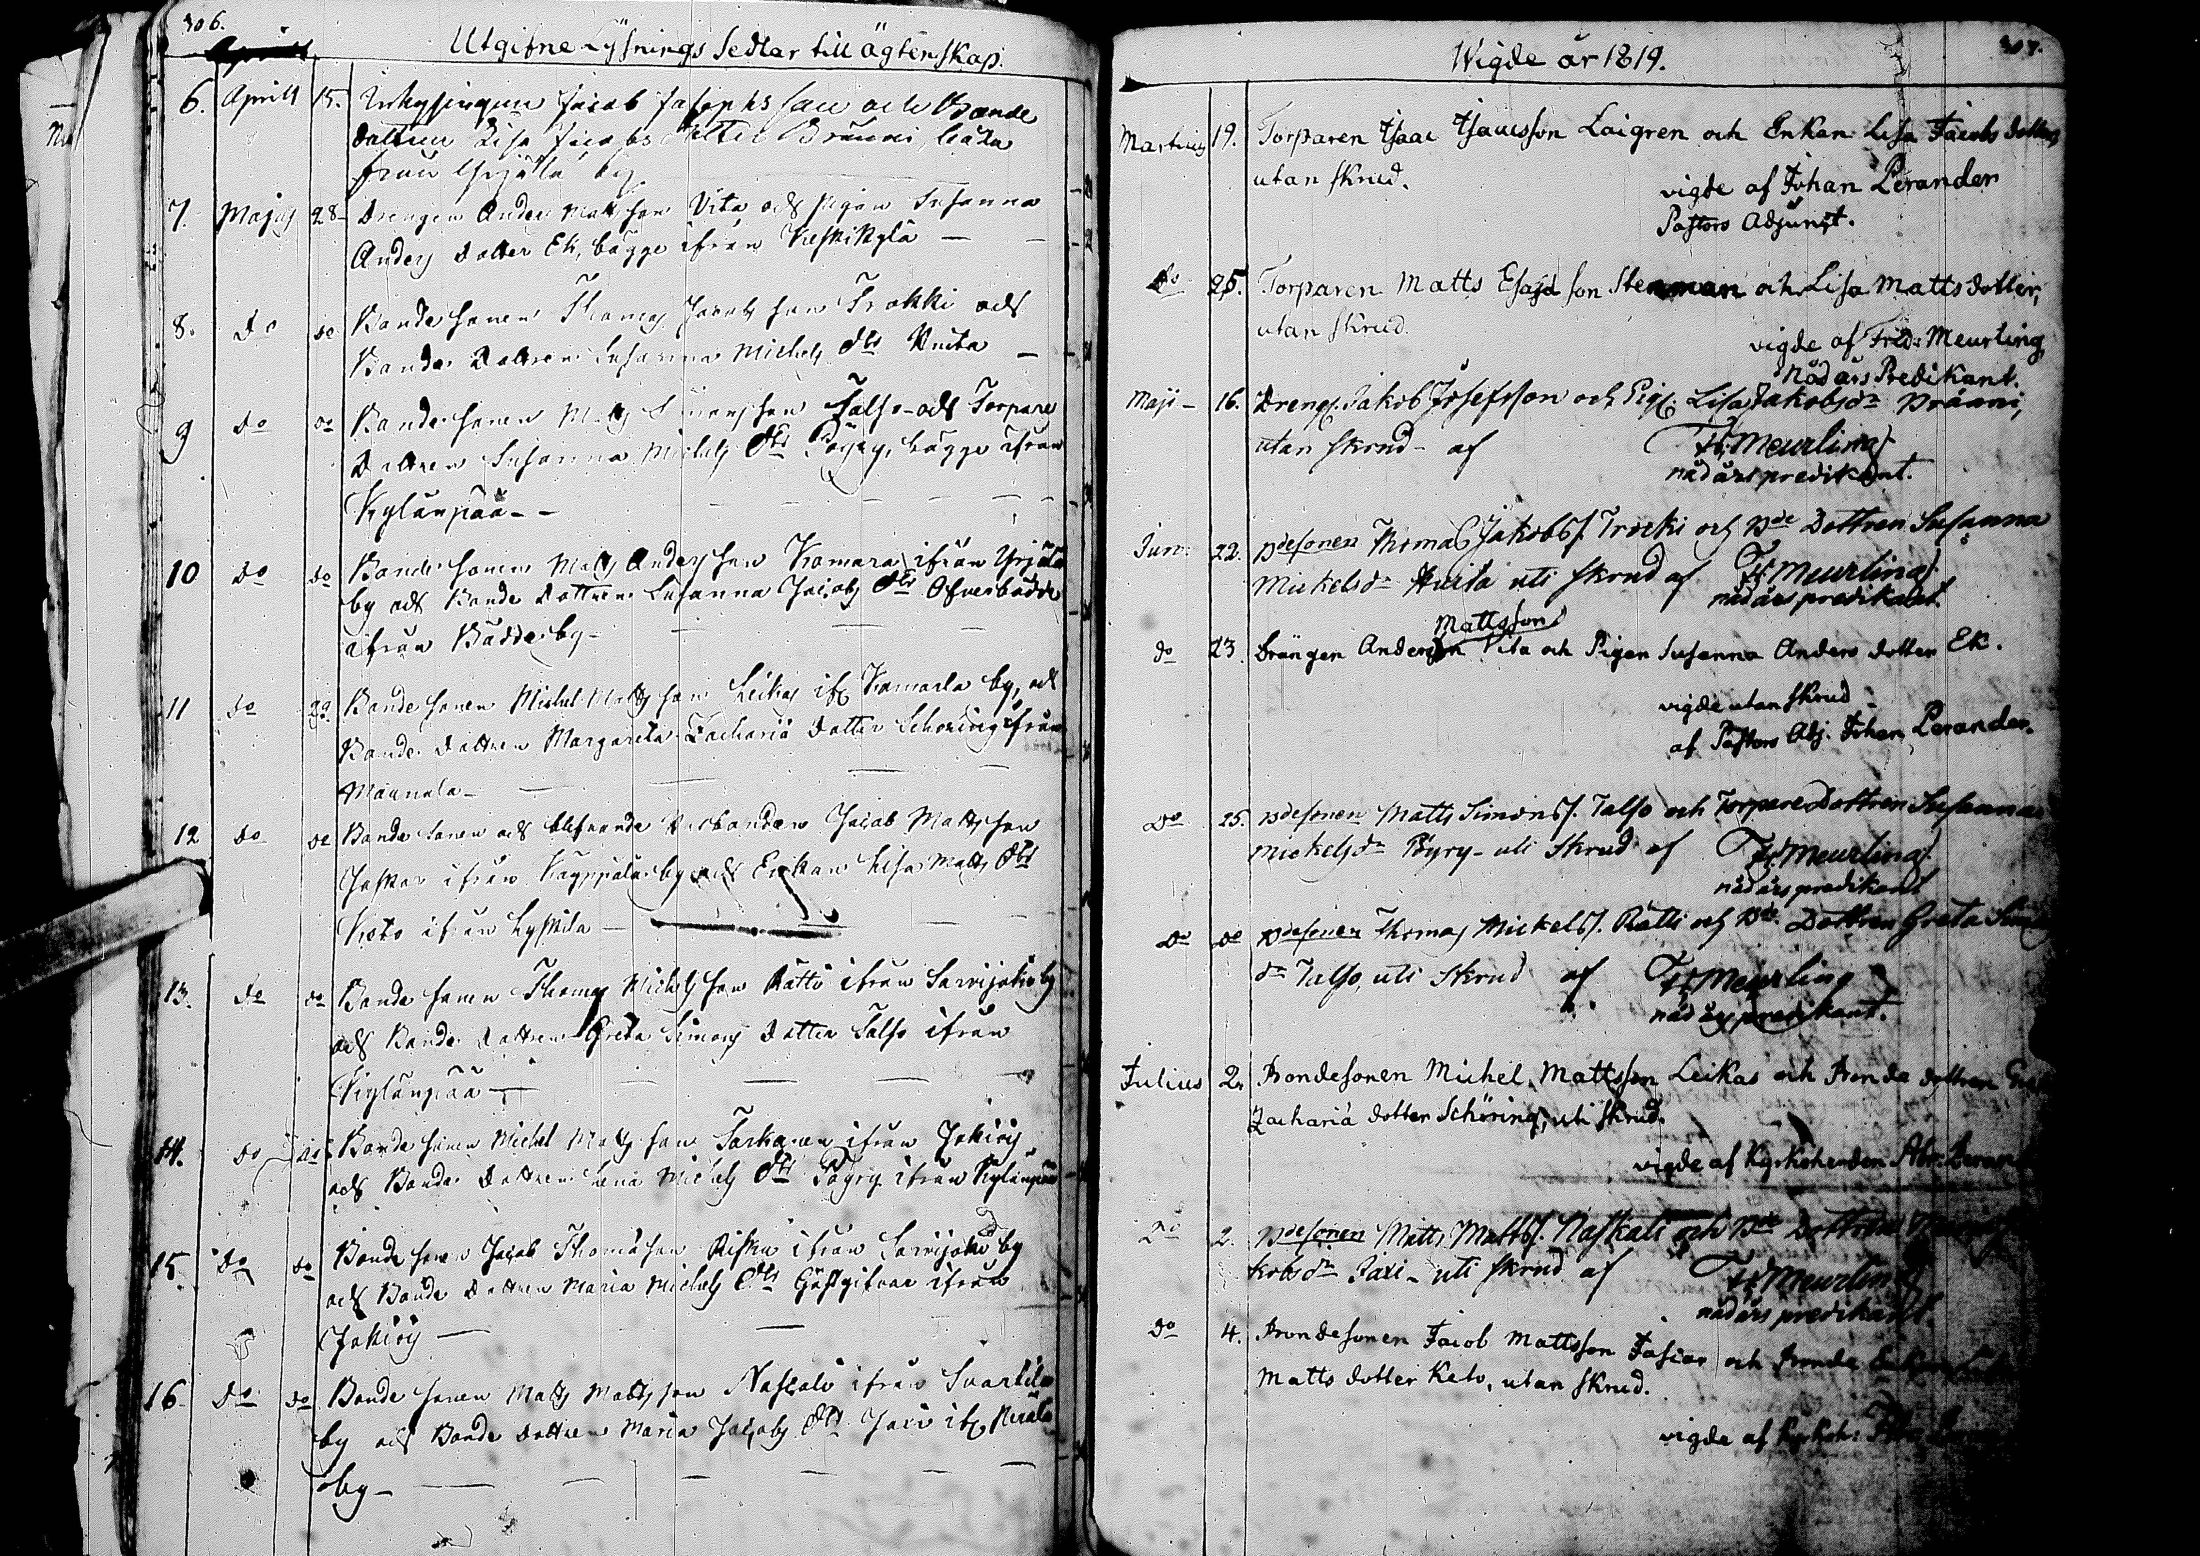 306.
Utgifne Lysnings Sedlar till ägtenskap.
6. Aprill 15. Inhysingen Jacob Josephs son och Bonde
dottren Lisa Jacobs dotter Brunni, båda
från Yrjälä by
7. Majus 28 Drengen Anders Matts son Vita och pigan Susanna
Anders Dotter Ek, bägge ifrån Keskikylä —
8. Do do Bonde sonen Thomas Jacobs son Trokki och
Bonde Dottren Susanna Michels dtr Knita —
9 Do do Bonde sonen Matts Simons son Talso och Torpare
Dottren Susanna Michels dtr Pöyry, bägge ifrån
Kylänpää - -
10 Do do Bonde sonen Matts Anders son Kamara ifrån Yrjälä
by och Bonde Dottren Susanna Jacobs dtr Öfverbödde
ifrån Böddesby -
11 Do 29. Bonde sonen Michel Matts son Leikas ifr. Kamarla by, och
Bonde Dottren Margareta Zachariä Dotter Schöring ifrån
Maunula -
12 Do do Bonde sonen och blifvande Jacob Matts son
Jaskar ifrån by och Enkan Lisa Matts dtr
Keto ifrån
13. Do do Bonde sonen Thomas Michels son Rätti ifrån Sarvijoki by
och Bonde Dottren Greta Simons Dotter Talso ifrån
Kylänpää —
14. Do do Bonde sonen Michel Matts son ifrån Jokisy
och Bonde Dottren Lena Michels dtr Pöyry ifrån Kylänpää
15. Do do Bonde sonen Jacob Thomä son Risku ifrån Sarvijoki by
och Bonde Dottren Maria Michels dtr Gästgifvar ifrån
Jokisy —
16 Do do Bonde sonen Matts Matts son Naskali ifrån
by och Bonde Dottren Maria Jacobs dtr ifr.
by —
307.
Wigde år 1819.
Martius 19. Torparen Isaac Isaacsson Laigren och Enkan Lisa Jacobs dotter
utan skrud.
vigde af Johan Perander
Pastors Adjunct.
Do 25. Torparen Matts Esajæ son Stenman och Lisa Matts dotter,
utan skrud.
vigde af Fred: Meurling
Nådårs Predikant.
Maji — 16. Dreng. Jakob Josefsson och Pig. Lisa Jakobsdr Pränni,
utan skrud - af Fr. Meurling
nådårspredikant.
Juni 22. Bdesonen Thomas Jakobss. Trocki och Bde Dottren Susanna
Mickelsdr Huita uti skrud af Fr. Meurling
nådårspredikant.
Mattsson
do 23. Drängen Anders Vita och Pigan Susanna Anders dotter Ek.
vigde utan skrud
af Pastors Adj. Johan Perander.
Do 25. Bdesonen Matts Simonss. Talso och Torpare Dottren Susanna
Mickelsdr Pöyry - uti skrud af Fr. Meurling
nådårspredikant
Do do Bdesonen Thomas Mickelss. Rätti och Bde Dottren Greta
dr Talso, uti skrud af Fr. Meurling
nådårspredikant.
Julius 2. Bondesonen Michel Mattsson Leikas och Bonda dottren
Zachariä dotter Schöring, uti skrud.
vigde af Kyrkoherden Abr.
Do 2. Bdesonen Matts Mattss. Naskali och Bde Dottren
kobsdr Jaxi - uti skrud af Fr. Meurling
nådårs predikant.
do 4. Bondesonen Jacob Mattsson och Bonde
Matts dotter Keto, utan skrud.
vigde af Kyrkoh: